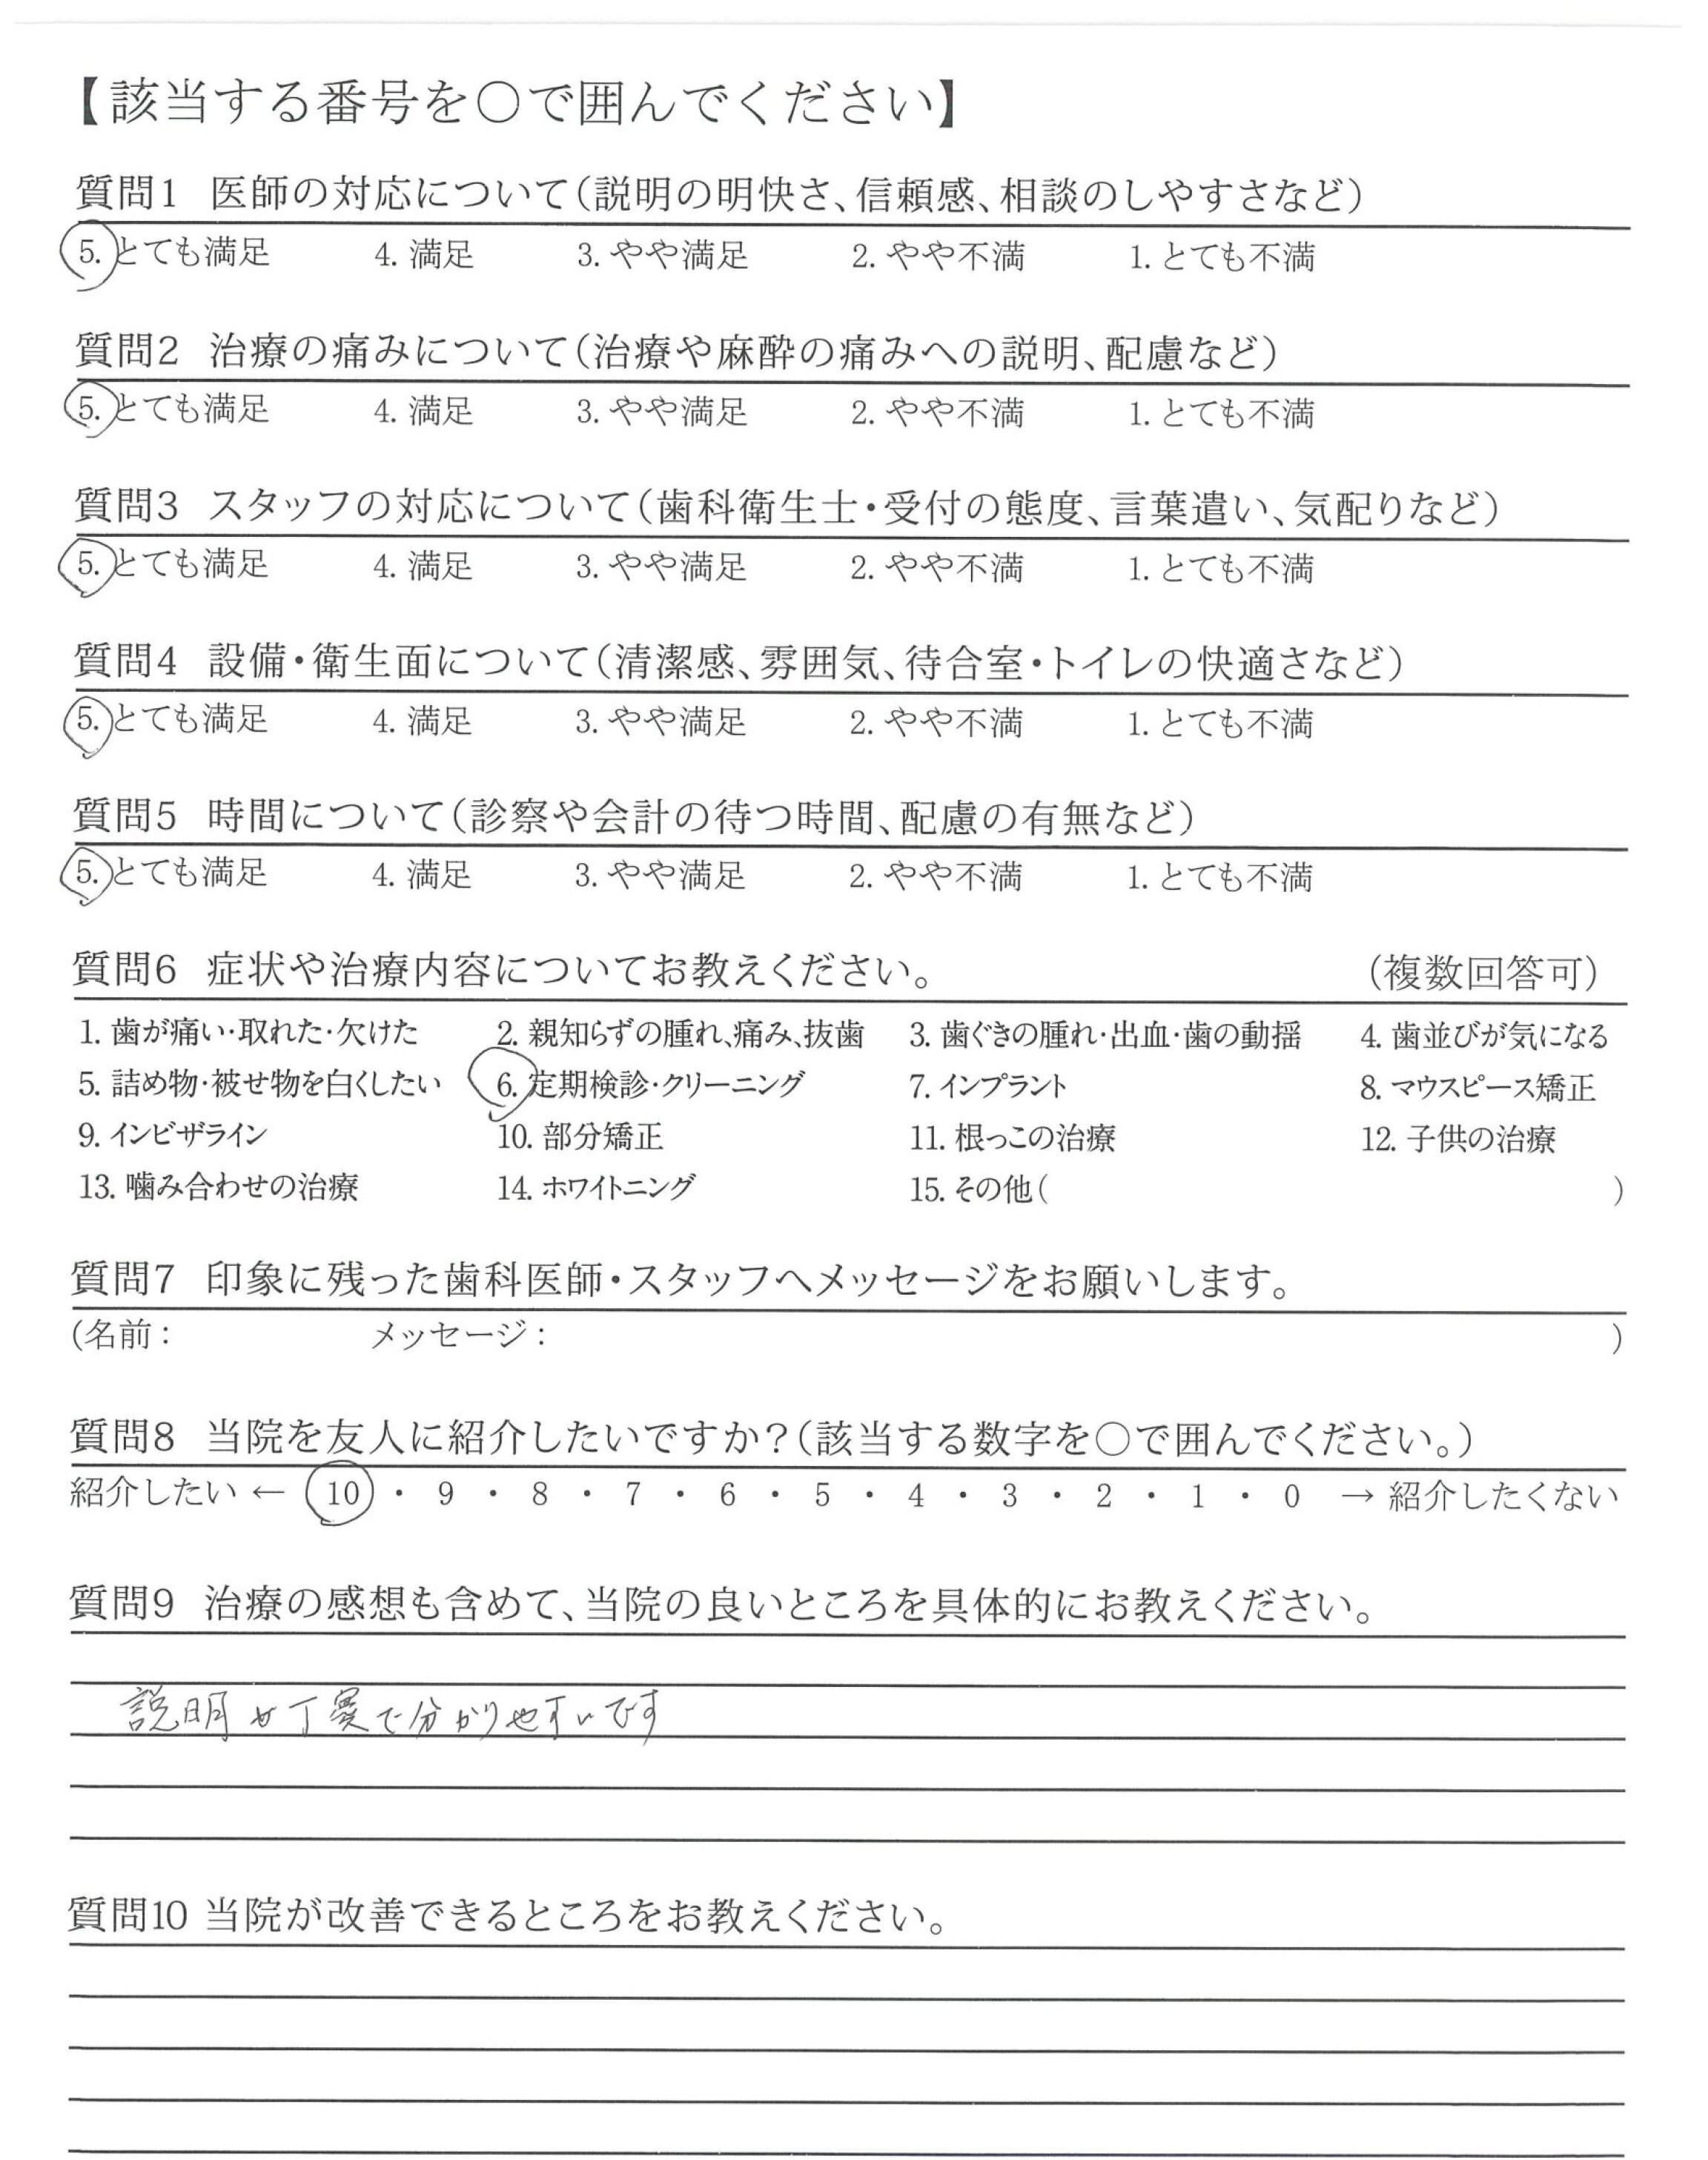 【該当する番号を○で囲んでください】
質問1 医師の対応について(説明の明快さ、信頼感、相談のしやすさなど)
5. とても満足 4. 満足 3. やや満足 2. やや不満 1. とても不満
質問2 治療の痛みについて(治療や麻酔の痛みへの説明、配慮など)
5. とても満足 4. 満足 3. やや満足 2. やや不満 1. とても不満
質問3 スタッフの対応について(歯科衛生士・受付の態度、言葉遣い、気配りなど)
5. とても満足 4. 満足 3. やや満足 2. やや不満 1. とても不満
質問4 設備・衛生面について(清潔感、雰囲気、待合室・トイレの快適さなど)
5. とても満足 4. 満足 3. やや満足 2. やや不満 1. とても不満
質問5 時間について(診察や会計の待つ時間、配慮の有無など)
5. とても満足 4. 満足 3. やや満足 2. やや不満 1. とても不満
質問6 症状や治療内容についてお教えください。 (複数回答可)
1. 歯が痛い・取れた・欠けた 2. 親知らずの腫れ、痛み、抜歯 3. 歯ぐきの腫れ・出血・歯の動揺 4. 歯並びが気になる
5. 詰め物・被せ物を白くしたい 6. 定期検診・クリーニング 7. インプラント 8. マウスピース矯正
9. インビザライン 10. 部分矯正 11. 根っこの治療 12. 子供の治療
13. 噛み合わせの治療 14. ホワイトニング 15. その他( )
質問7 印象に残った歯科医師・スタッフへメッセージをお願いします。
(名前: メッセージ: )
質問8 当院を友人に紹介したいですか?(該当する数字を○で囲んでください。)
紹介したい ← 10 ・ 9 ・ 8 ・ 7 ・ 6 ・ 5 ・ 4 ・ 3 ・ 2 ・ 1 ・ 0 → 紹介したくない
質問9 治療の感想も含めて、当院の良いところを具体的にお教えください。
説明 丁寧で分かりやすいです
質問10 当院が改善できるところをお教えください。